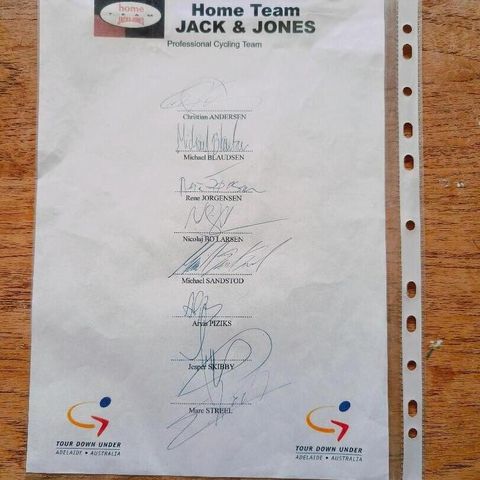 home
TEAM
JACK & JONES
Home Team
JACK & JONES
Professional Cycling Team
Christian ANDERSEN
Michael Blaudzun
Michael BLAUDSEN
Rene JORGENSEN
Nicolaj BO LARSEN
Michael SANDSTOD
Arvis PIZIKS
Jesper SKIBBY
Marc STREEL
TOUR DOWN UNDER
ADELAIDE • AUSTRALIA
TOUR DOWN UNDER
ADELAIDE • AUSTRALIA